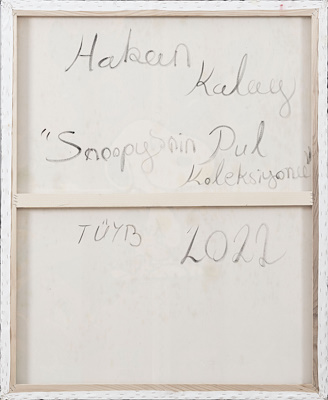 Hakan
Kalay
"Snoopy'nin Pul
Koleksiyonu"
TÜYB 2022